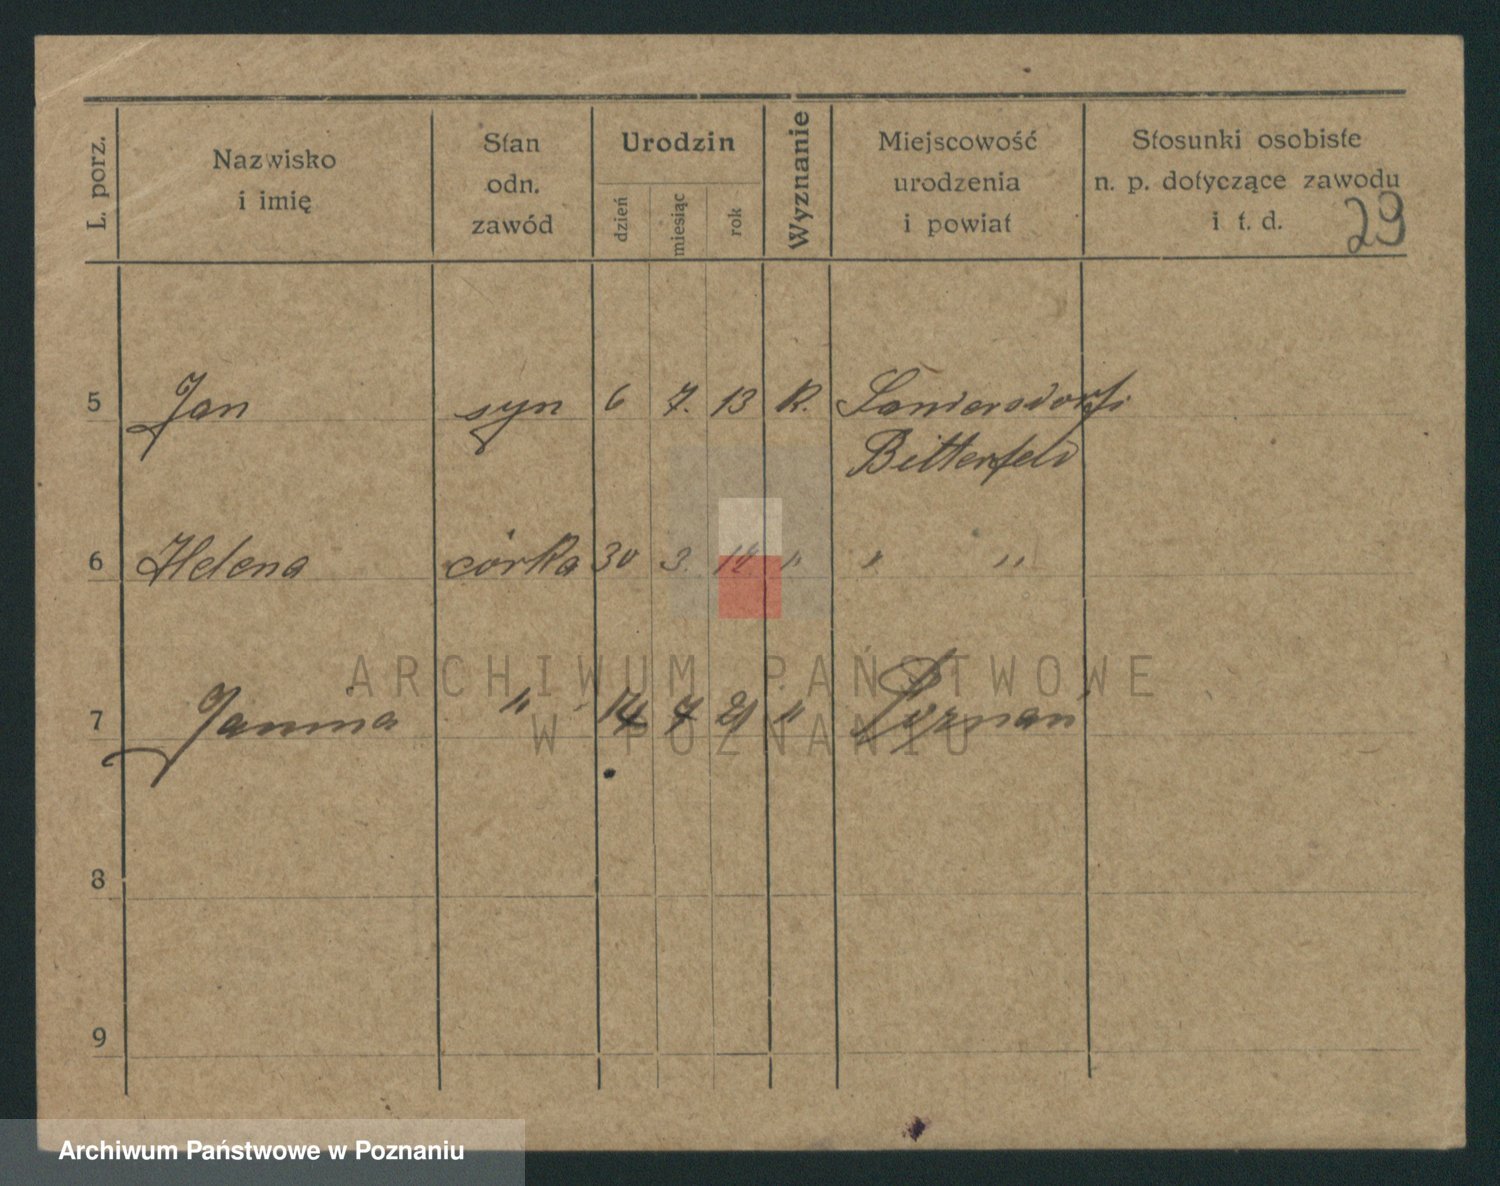 L. porz.
Nazwisko
i imię
Stan
odn.
zawód
Urodzin
dzień
miesiąc
rok
Wyznanie
Miejscowość
urodzenia
i powiat
Stosunki osobiste
n. p. dotyczące zawodu
i t. d.
29
5 Jan syn 6 7. 13 R.
Bitterfeld
6 Helena córka 30 3. " " "
7 Janina " 14 7 21 " Poznań
8
9
ARCHIWUM PAŃSTWOWE
W POZNANIU
Archiwum Państwowe w Poznaniu